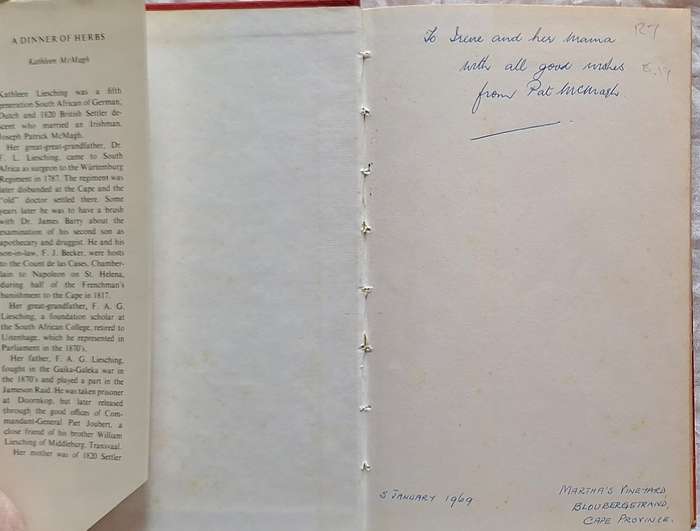 A DINNER OF HERBS
Kathleen McMagh
Kathleen Liesching was a fifth
generation South African of German,
Dutch and 1820 British Settler de-
scent who married an Irishman,
Joseph Patrick McMagh.
Her great-great-grandfather, Dr.
F. L. Liesching, came to South
Africa as surgeon to the Würtemburg
Regiment in 1787. The regiment was
later disbanded at the Cape and the
"old" doctor settled there. Some
years later he was to have a brush
with Dr. James Barry about the
examination of his second son as
apothecary and druggist. He and his
son-in-law, F. J. Becker, were hosts
to the Count de las Cases, Chamber-
lain to Napoleon on St. Helena,
during half of the Frenchman's
banishment to the Cape in 1817.
Her great-grandfather, F. A. G.
Liesching, a foundation scholar at
the South African College, retired to
Uitenhage, which he represented in
Parliament in the 1870's.
Her father, F. A. G. Liesching,
fought in the Gaika-Galeka war in
the 1870's and played a part in the
Jameson Raid. He was taken prisoner
at Doornkop, but later released
through the good offices of Com-
mandant-General Piet Joubert, a
close friend of his brother William
Liesching of Middleburg, Transvaal.
Her mother was of 1820 Settler
To Irene and her Mama
with all good wishes
from Pat McMagh.
5 JANUARY 1969
MARTHA'S VINEYARD
BLOUBERGSTRAND,
CAPE PROVINCE.